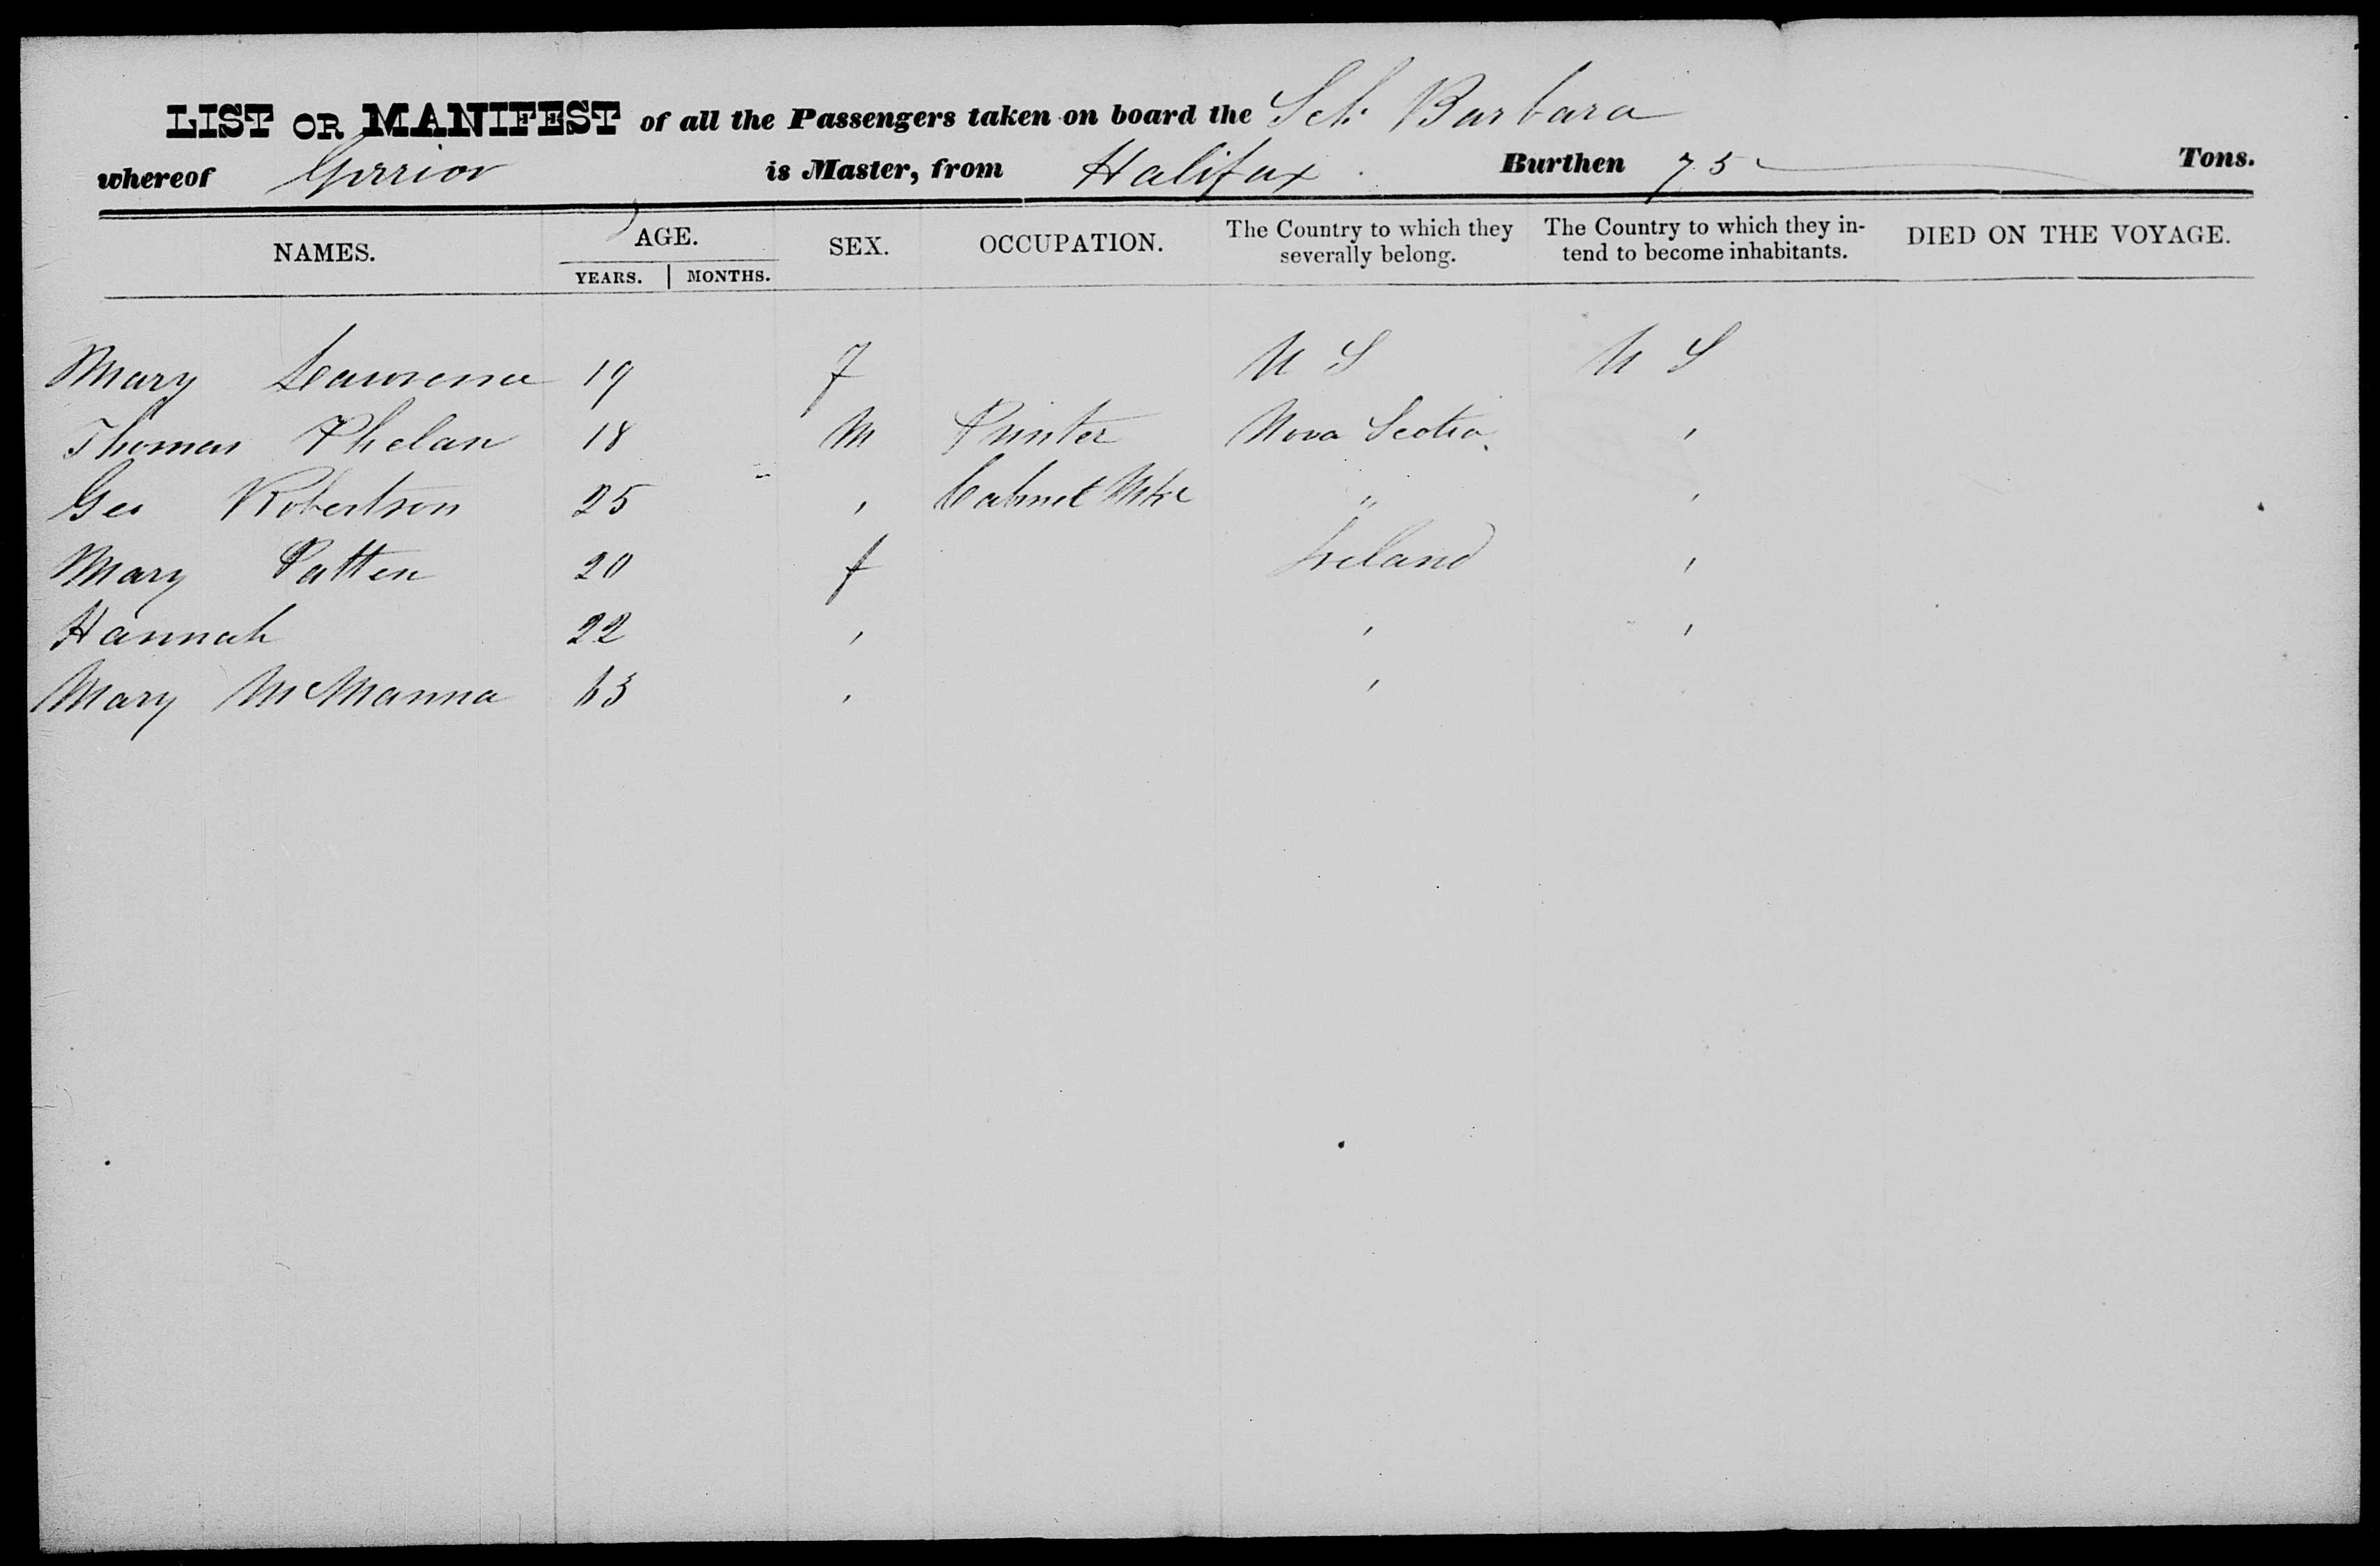 LIST OR MANIFEST of all the Passengers taken on board the Sch Barbara
whereof Gerrior is Master, from Halifax. Burthen 75 Tons.
NAMES. AGE. YEARS. MONTHS. SEX. OCCUPATION. The Country to which they severally belong. The Country to which they intend to become inhabitants. DIED ON THE VOYAGE.
Mary Lawrence 19 f U S U S
Thomas Phelan 18 M Printer Nova Scotia "
Geo Robertson 25 " Cabinet Mkr " "
Mary Patten 20 f Ireland "
Hannah 22 " " "
Mary McManna " "